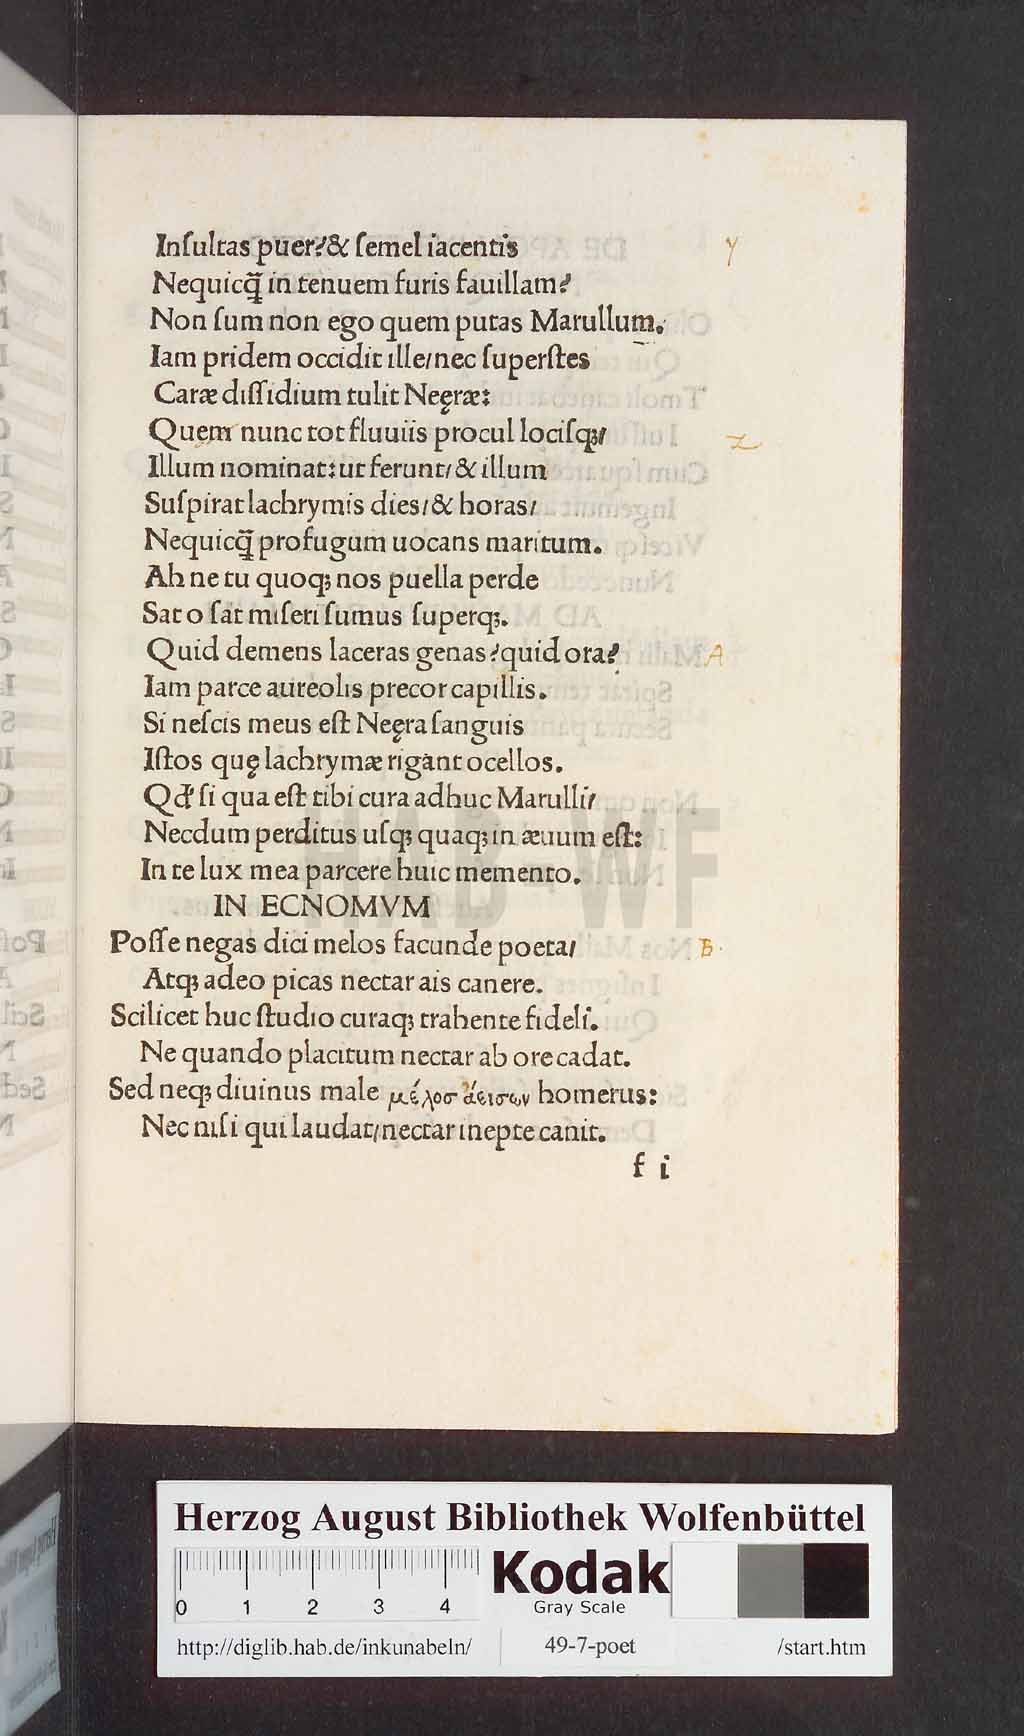 Inſultas puer?& ſemel iacentis
Nequicq̃ in tenuem furis fauillam?
Non ſum non ego quem putas Marullum.
Iam pridem occidit ille/nec ſuperſtes
Caræ diſſidium tulit Neęræ:
Quem nunc tot fluuiis procul lociſq;/
Illum nominat:ut ferunt/& illum
Suſpirat lachrymis dies/& horas/
Nequicq̃ profugum uocans maritum.
Ah ne tu quoq; nos puella perde
Sat o ſat miſeri ſumus ſuperq;.
Quid demens laceras genas?quid ora?
Iam parce aureolis precor capillis.
Si neſcis meus eſt Neęra ſanguis
Iſtos quę lachrymæ rigant ocellos.
Qđ ſi qua eſt tibi cura adhuc Marulli/
Necdum perditus uſq; quaq; in æuum eſt:
In te lux mea parcere huic memento.
IN ECNOMVM
Poſſe negas dici melos facunde poeta/
Atq; adeo picas nectar ais canere.
Scilicet huc ſtudio curaq; trahente fideli.
Ne quando placitum nectar ab ore cadat.
Sed neq; diuinus male μέλοσ ἀεισων homerus:
Nec niſi qui laudat/nectar inepte canit.
f i
y
z
A
B.
HAB-WF
Herzog August Bibliothek Wolfenbüttel
0 1 2 3 4
Kodak
Gray Scale
http://diglib.hab.de/inkunabeln/ 49-7-poet /start.htm